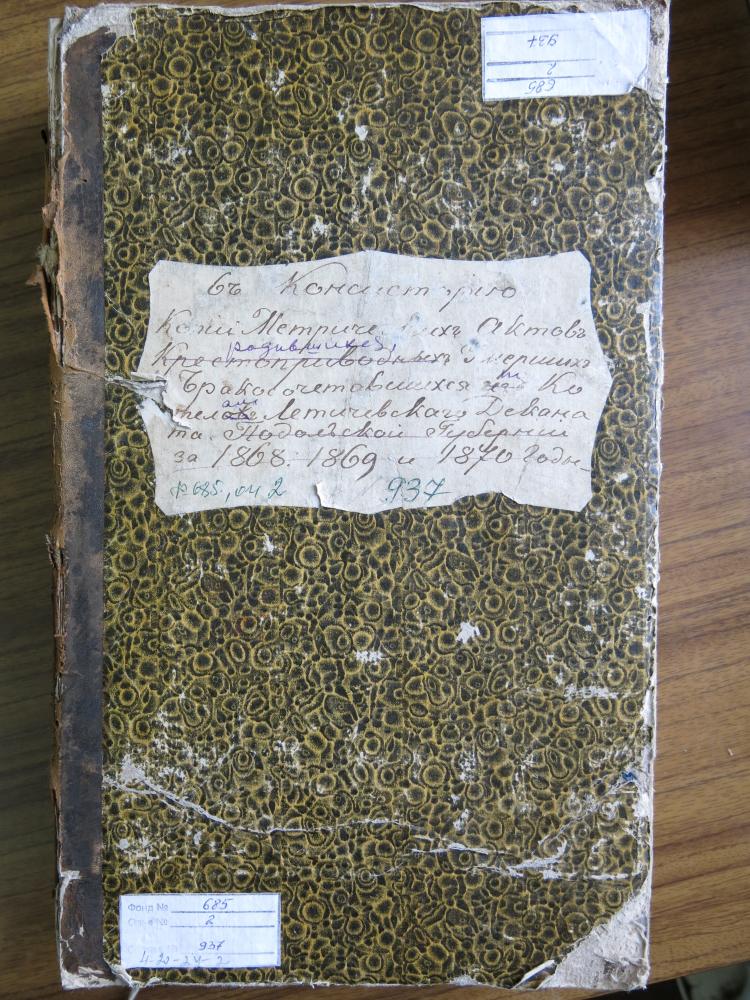 937
2
685
Въ Консисторію
Копіи Метрическихъ Актовъ
родившихся,
Крестоприводныхъ умершихъ
Бракосочетавшихся и Ко
Летичевскаго Декана
та Подольской Губерніи
за 1868. 1869 и 1870 годы
ф 685, оп 2 937
Фонд № 685
Опись № 2
937
4-20-24-2